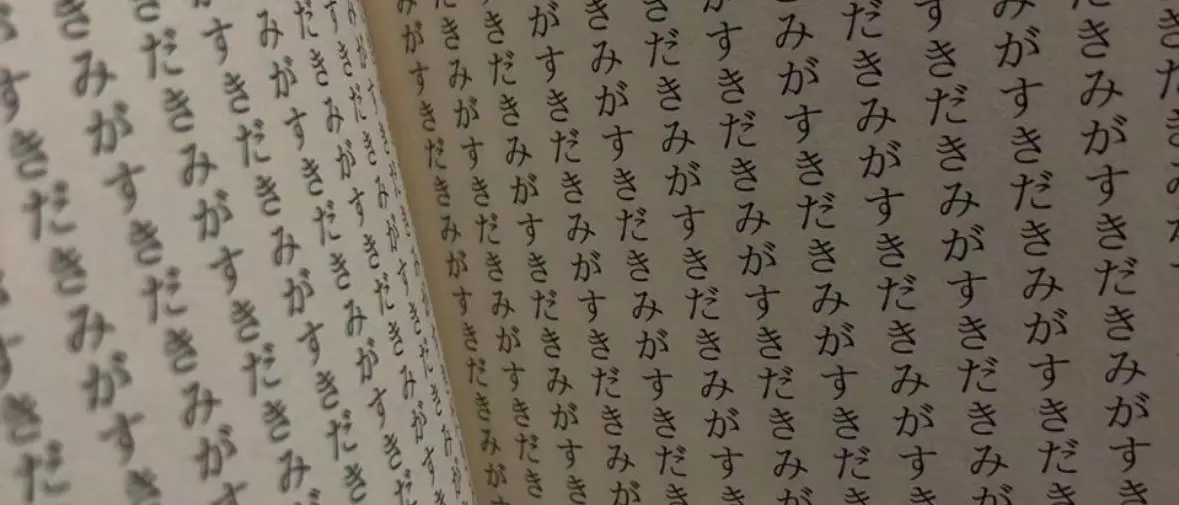 きだきみ
きみがすきだきみがすき
みがすきだきみがすきだき
すきだきみがすきだきみが
だきみがすきだきみがすき
みがすきだきみがすきだき
がすきだきみがすきだきみが
きだきみがすきだきみがすき
きみがすきだきみがすきだき
がすきだきみがすきだきみが
きだきみがすきだきみがすき
きみがすきだきみがすきだき
みがすきだきみがすきだきみがす
だきみがすきだきみがすきだ
だきみがすきだきみがすきだ
みがすきだきみがすきだき
すきだきみがすきだきみ
だきみがすきだきみが
きみがすきだきみがす
すきだきみがすき
すきだ